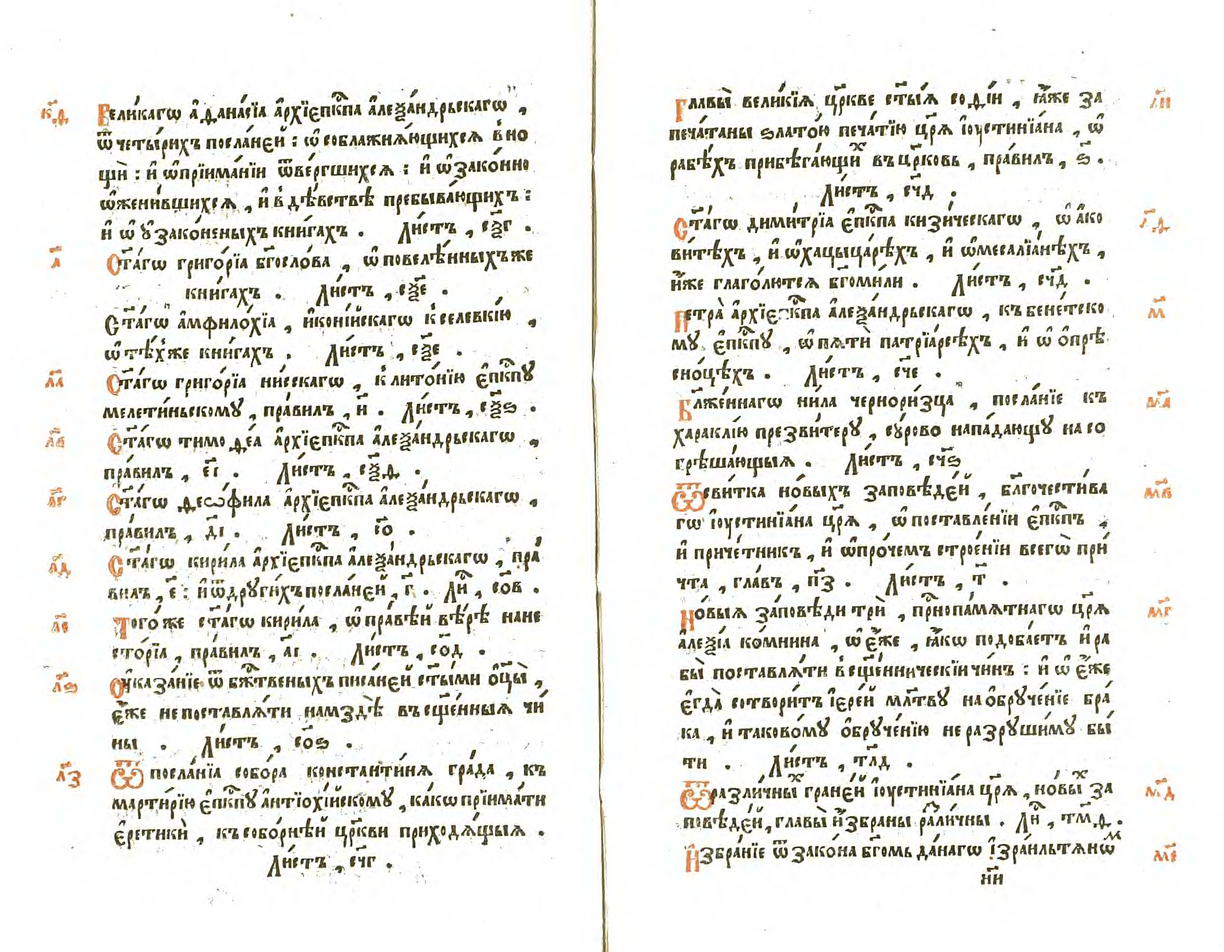 к҃ѳ Вели́кагѡ а҆ѳана́сїа а҆рхїепⷭ҇кпа а҆леѯа́ндрьскагѡ ,
ѿ четы́рихъ посла́нєй : ѡ҆ соблажнѧ́ющихсѧ в но
щѝ : и҆ ѡ҆ прїима́нїи ѿве́ргшихсѧ : и҆ ѡ҆ зако́нно
ѡ҆жени́вшихсѧ , и҆ в дѣ́вствѣ пребыва́ющихъ :
и҆ ѡ҆ ᲂу҆зако́неныхъ кни́гахъ . Ли́стъ , с҃ѯг .
л҃ Ст҃а́гѡ григо́рїа бг҃осло́ва , ѡ҆ повелѣ́нныхъ же
кни́гахъ . Ли́стъ , с҃ѯе .
Ст҃а́гѡ а҆мфило́хїа , и҆коні́йскагѡ к селевкі́ю ,
ѡ҆ тѣ́хже кни́гахъ . Ли́стъ , с҃ѯе .
л҃а Ст҃а́гѡ григо́рїа ни́сскагѡ , к лито́нїю є҆пⷭ҇кпꙋ
мелети́ньскомꙋ , пра́вилъ , и҃ . Ли́стъ , с҃ѯѕ .
л҃в Ст҃а́гѡ тимоѳе́а а҆рхїепⷭ҇кпа а҆леѯа́ндрьскагѡ ,
пра́вилъ , є҃і . Ли́стъ , с҃ѯѳ .
л҃г Ст҃а́гѡ ѳеѡфи́ла а҆рхїепⷭ҇кпа а҆леѯа́ндрьскагѡ ,
пра́вилъ , д҃і . Ли́стъ , с҃о .
л҃д Ст҃а́гѡ кири́ла а҆рхїепⷭ҇кпа а҆леѯа́ндрьскагѡ , пра́
вилъ , є҃ : и҆ ѿ дрꙋги́хъ посла́нєй , г҃ . Ли́ , с҃ов .
л҃є Того́же ст҃а́гѡ кири́ла , ѡ҆ пра́вѣй вѣ́рѣ на не
сто́рїа , пра́вилъ , а҃і . Ли́стъ , с҃од .
л҃ѕ Оу҆каза́нїе ѿ бж҃е́ственыхъ писа́нєй ст҃ы́ми ѻ҆ц҃ы̀ ,
є҆́же не поставлѧ́ти на мздѣ̀ въ сщ҃е́нныѧ чи́
ны . Ли́стъ , с҃оѕ .
л҃з Ѿ посла́нїа собо́ра константи́нѧ гра́да , къ
марти́рїю є҆пⷭ҇кпꙋ а҆нтїохі́йскомꙋ , ка́кѡ прїима́ти
є҆ретикѝ , къ собо́рнѣй цр҃кви приходѧ́щыѧ .
Ли́стъ , с҃чг .
л҃и Главы̀ вели́кїѧ цр҃кве ст҃ы́ѧ софі́и , ꙗ҆́же за
печа́таны злато́ю печа́тїю цр҃ѧ̀ і҆ѹстинїа́на , ѡ҆
рабѣ́хъ прибѣга́ющиⷯ въ цр҃ковь , пра́вилъ , ѕ҃ .
Ли́стъ , с҃чд .
л҃ѳ Ст҃а́гѡ дими́трїа є҆пⷭ҇кпа кизи́ческагѡ , ѡ҆ а҆ко
ви́тѣхъ , и҆ ѡ҆ хацыца́рѣхъ , и҆ ѡ҆ месалїа́нѣхъ ,
и҆̀же глаго́лютсѧ бг҃оми́ли . Ли́стъ , с҃чд .
м҃ Петра̀ а҆рхїепⷭ҇кпа а҆леѯа́ндрьскагѡ , къ бене́тско
мꙋ̀ є҆пⷭ҇кпꙋ , ѡ҆ пѧтѝ патрїа́рсѣхъ , и҆ ѡ҆ ѻ҆прѣ
сно́цѣхъ . Ли́стъ , с҃че .
м҃а Бл҃же́ннагѡ ни́ла чернори́зца , посла́нїе къ
хара́клїю презви́терꙋ , сꙋ́рово напа́дающꙋ на со
грѣша́ющыѧ . Ли́стъ , с҃чѕ
м҃в Ѿ сви́тка но́выхъ за́повѣдєй , бл҃гочести́ва
гѡ і҆ѹстинїа́на цр҃ѧ̀ , ѡ҆ поставле́нїи є҆пⷭ҇кпъ ,
и҆ приче́тникъ , и҆ ѡ҆ про́чемъ строе́нїи всегѡ̀ при́
чта , гла́въ , п҃з . Ли́стъ , т҃ .
м҃г Но́выѧ за́повѣди трѝ , приⷭ҇нопа́мѧтнагѡ цр҃ѧ̀
а҆леѯі́а комни́на , ѡ҆ є҆́же , ꙗ҆́кѡ подоба́етъ и҆ ра
бы̀ поставлѧ́ти в сщ҃е́нническїи чи́нъ : и҆ ѡ҆ є҆́же
є҆гда̀ сотвори́тъ і҆ере́й мл҃твꙋ на ѻ҆брꙋче́нїе бра́
ка , и҆ таково́мꙋ ѻ҆брꙋче́нїю не разрꙋши́мꙋ бы́
ти . Ли́стъ , т҃лд .
м҃д Ѿ разли́чныⷯ гране́й і҆ѹстинїа́на цр҃ѧ̀ , но́выⷯ за́
повѣдєй , главы̀ и҆збра́ны разли́чны . Ли́ , т҃мѳ .
м҃є И҆збра́нїе ѿ зако́на бг҃омь да́нагѡ і҆зра́ильтѧнѡⷨ
ни